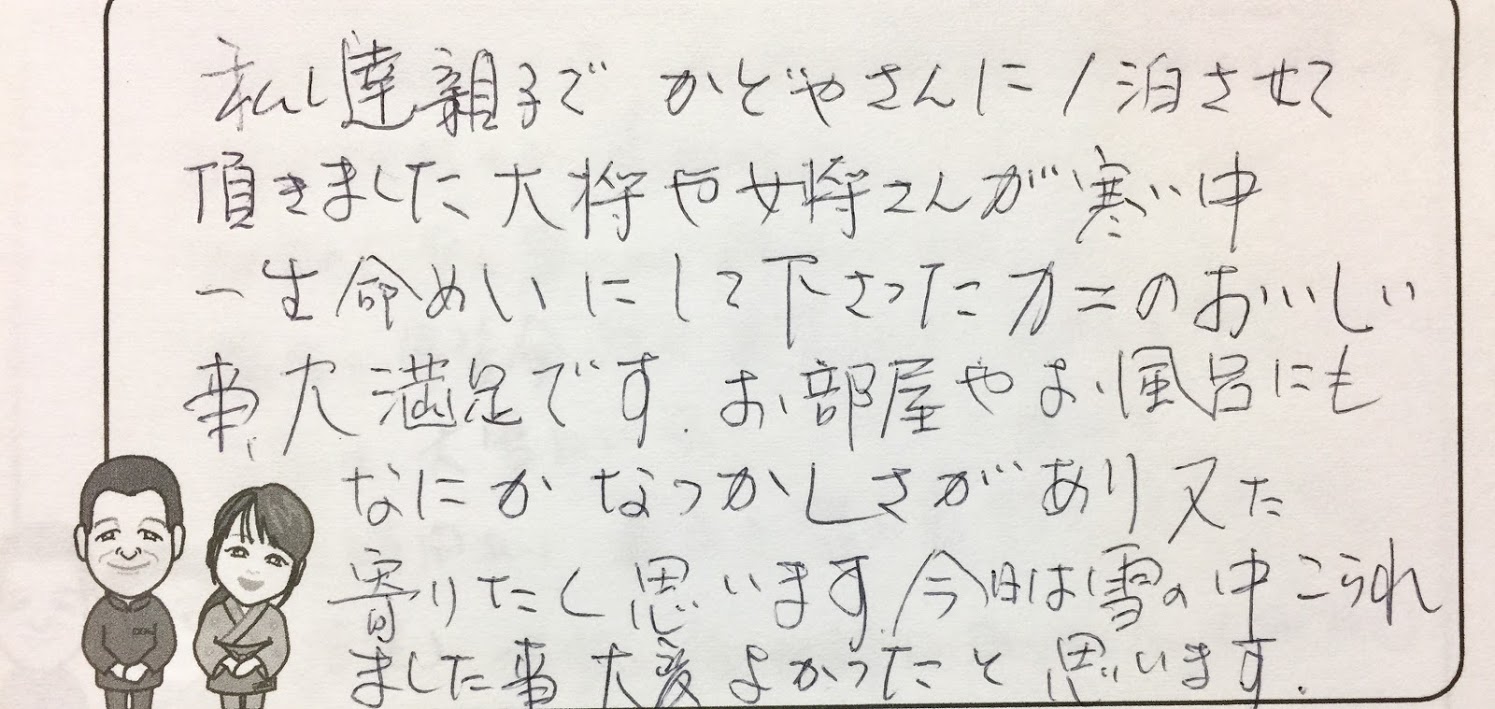 私し達親子で かどやさんに1泊させて
頂きました大将や女将さんが寒い中
一生命めいにして下さったカニのおいしい
事大満足です.お部屋やお風呂にも
なにかなつかしさがあり又た
寄りたく思います.今日は雪の中こられ
ました事大変よかったと思います.